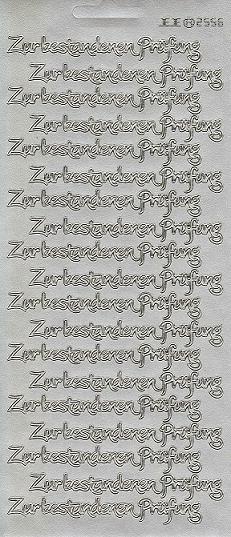 ® 2556
Zur bestandenen Prüfung
Zur bestandenen Prüfung
Zur bestandenen Prüfung
Zur bestandenen Prüfung
Zur bestandenen Prüfung
Zur bestandenen Prüfung
Zur bestandenen Prüfung
Zur bestandenen Prüfung
Zur bestandenen Prüfung
Zur bestandenen Prüfung
Zur bestandenen Prüfung
Zur bestandenen Prüfung
Zur bestandenen Prüfung
Zur bestandenen Prüfung
Zur bestandenen Prüfung
Zur bestandenen Prüfung
Zur bestandenen Prüfung
Zur bestandenen Prüfung
Zur bestandenen Prüfung